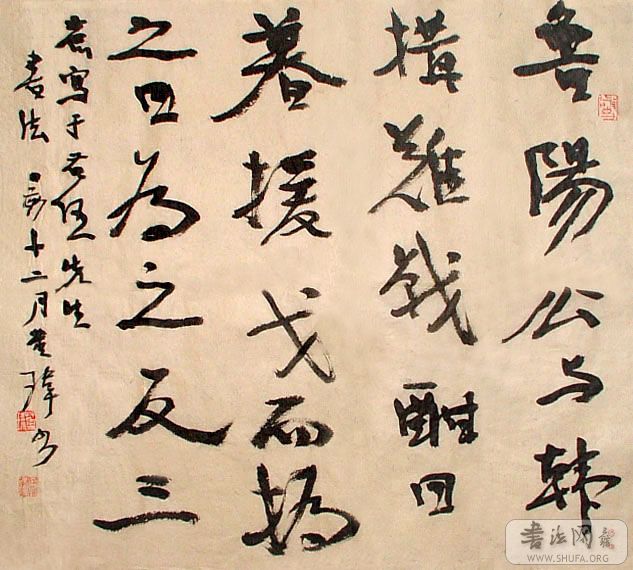 魯陽公与韩
搆難戰酣日
暮援戈而撝
之日为之反三
写于右任先生
書法 十二月
書法网
WWW.SHUFA.ORG